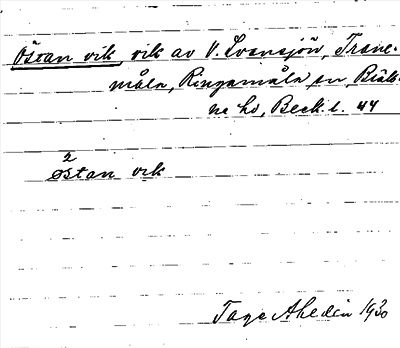 Östan vik, vik av V. Svansjön, Trane-
måla, Ringamåla sn, Bräk-
ne hd, Beck l. 44
2
östan vik
Tage Ahldén 1930